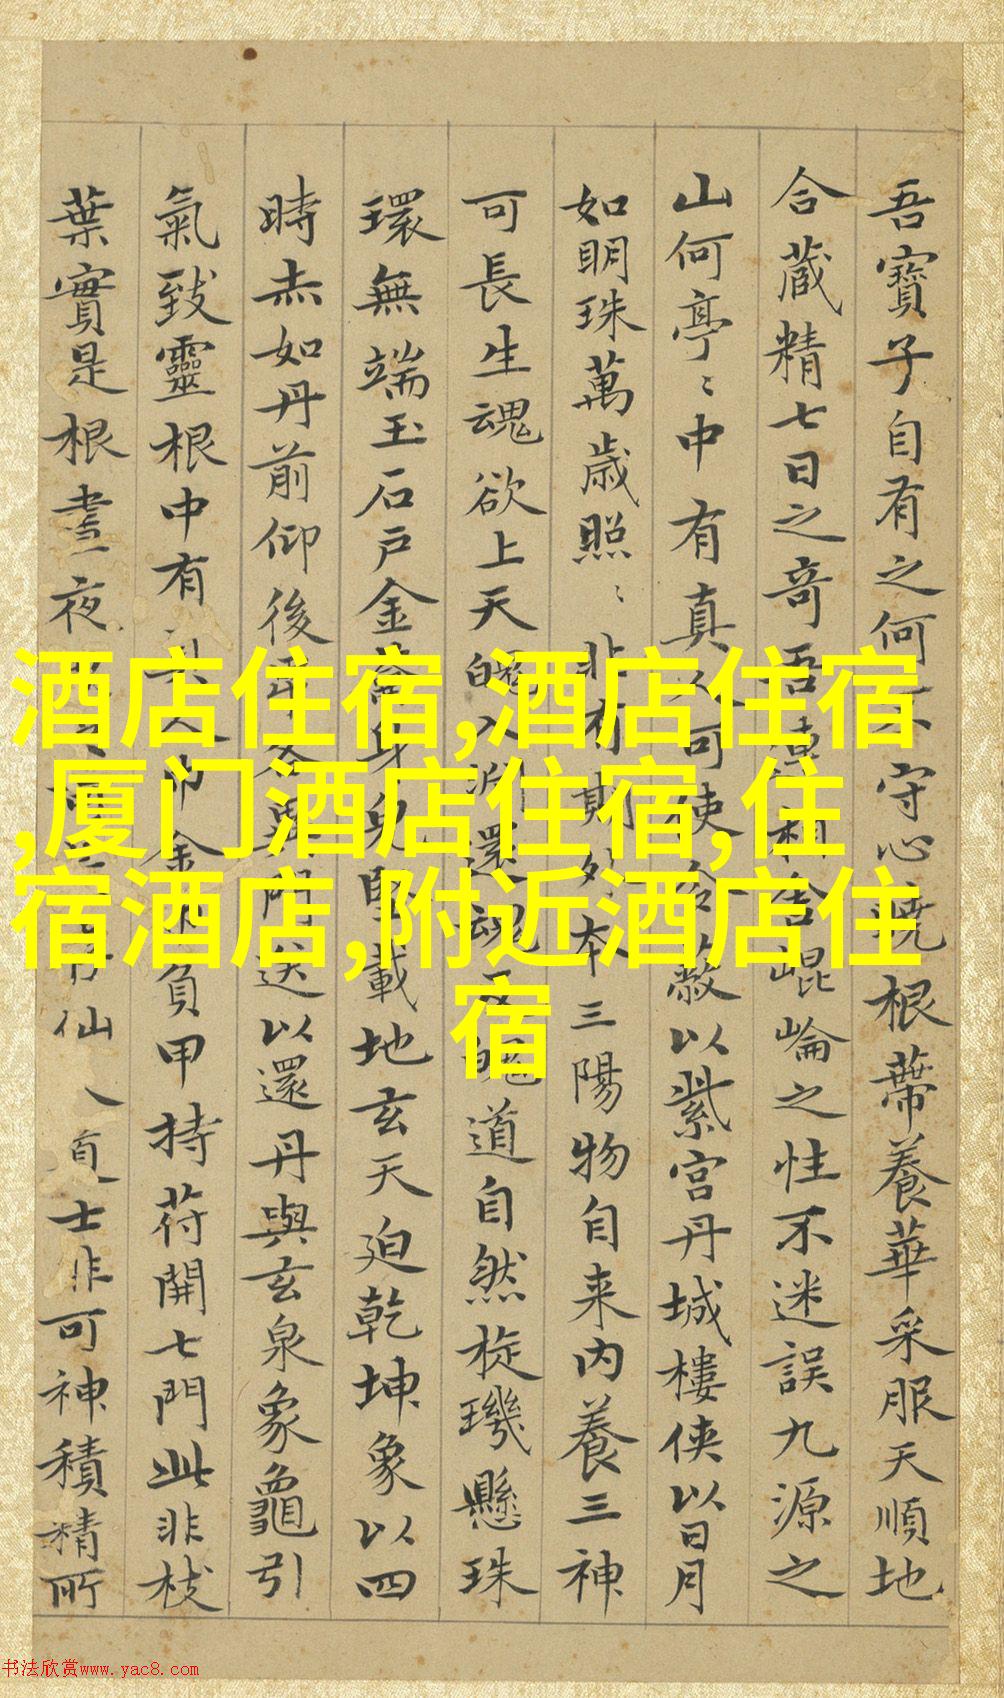 吾寶子自有之何不守心曉根蔕養華采服天順地
合藏精七日之奇吾連相舍崐崘之性不迷誤九源之
山何亭〻中有真人可使令蔽以紫宮丹城樓侠以日月
如明珠萬歲照〻非有期外本三陽物自来內養三神
可長生魂欲上天魄入淵還魂反魄道自然旋璣懸珠
環無端玉石戶金籥身兒堅載地玄天迫乾坤象以四
時赤如丹前仰後卑各異門送以還丹與玄泉象龜引
氣致靈根中有真人巾金巾負甲持苻開七門此非枝
葉實是根晝夜仙士非可神積精所
酒店住宿,酒店住宿
,厦门酒店住宿,住
宿酒店,附近酒店住
宿
书法欣赏www.yac8.com